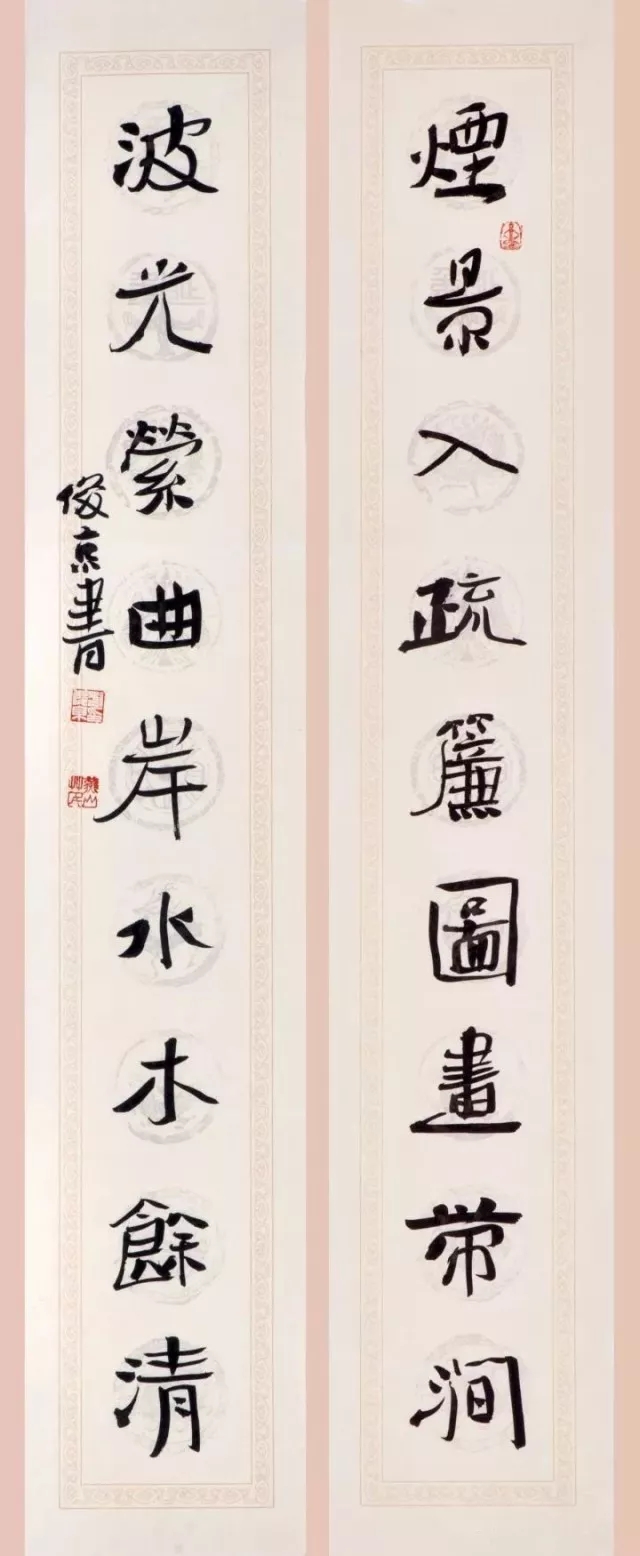 煙景入疏簾圖畫帶澗
波光縈曲岸水木餘清
俊京書